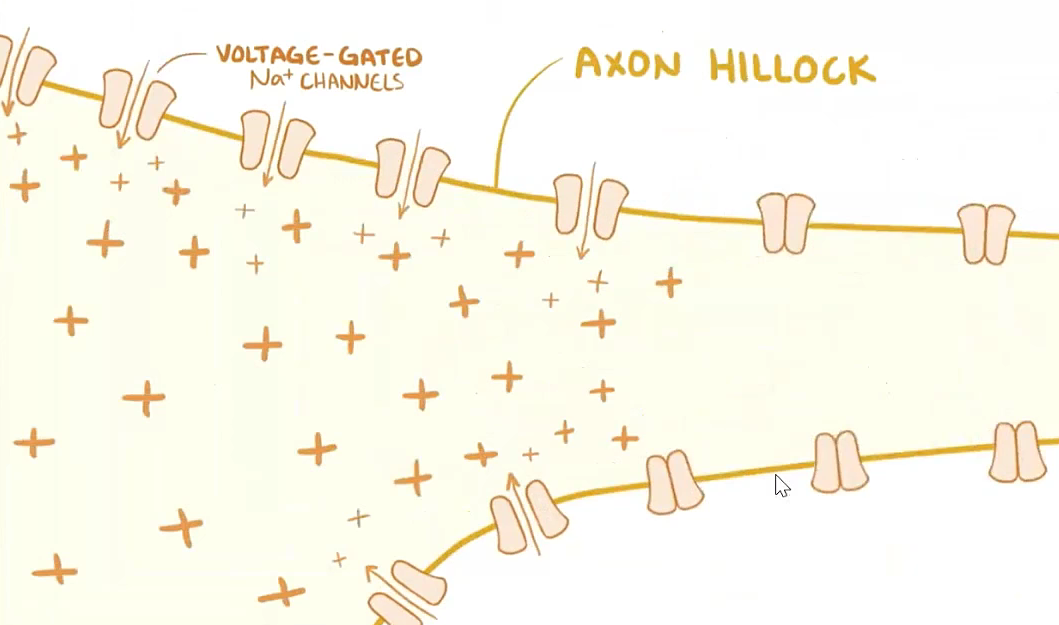 VOLTAGE-GATED
Na⁺ CHANNELS
AXON HILLOCK